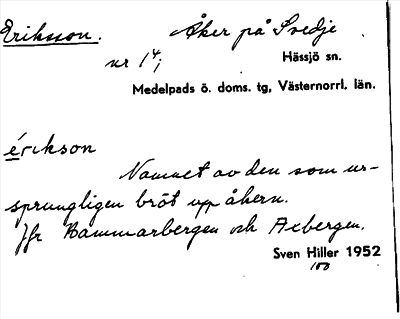 Eriksson. Åker på Svedje
nr 1⁴; Hässjö sn.
Medelpads ö. doms. tg, Västernorrl. län.
érikson
Namnet av den som ur-
sprungligen bröt upp åkern.
Jfr Hammarbergen och Axbergen.
Sven Hiller 1952
100